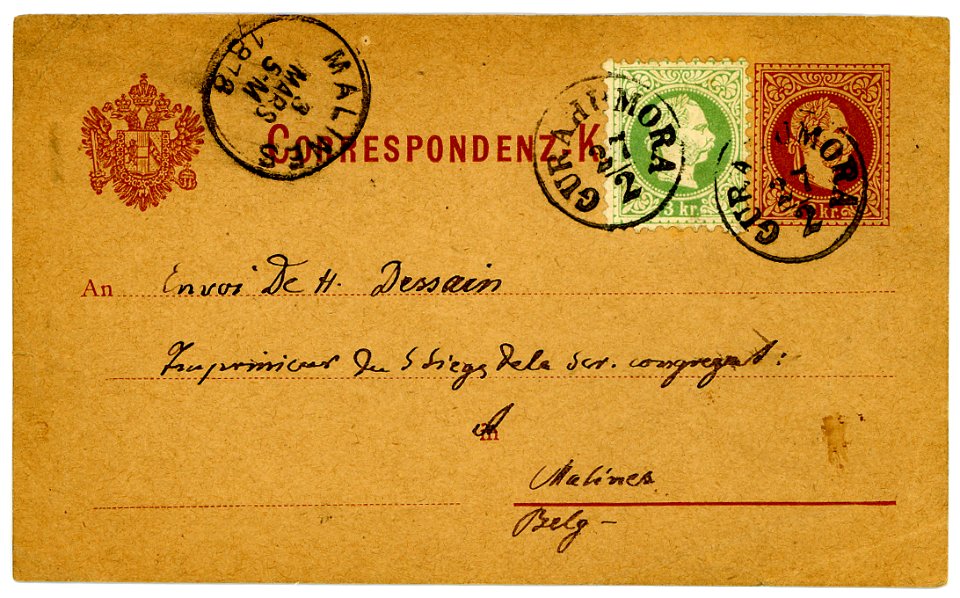 MALINES
3
MARS
5-M
1878
CORRESPONDENZ-K
GURAHUMORA
3 kr.
GURA UMORA
2 kr.
An Envoi De H. Dessain
Imprimieur du S Siege de la Scr. congregat:
in
Malines
Belg-